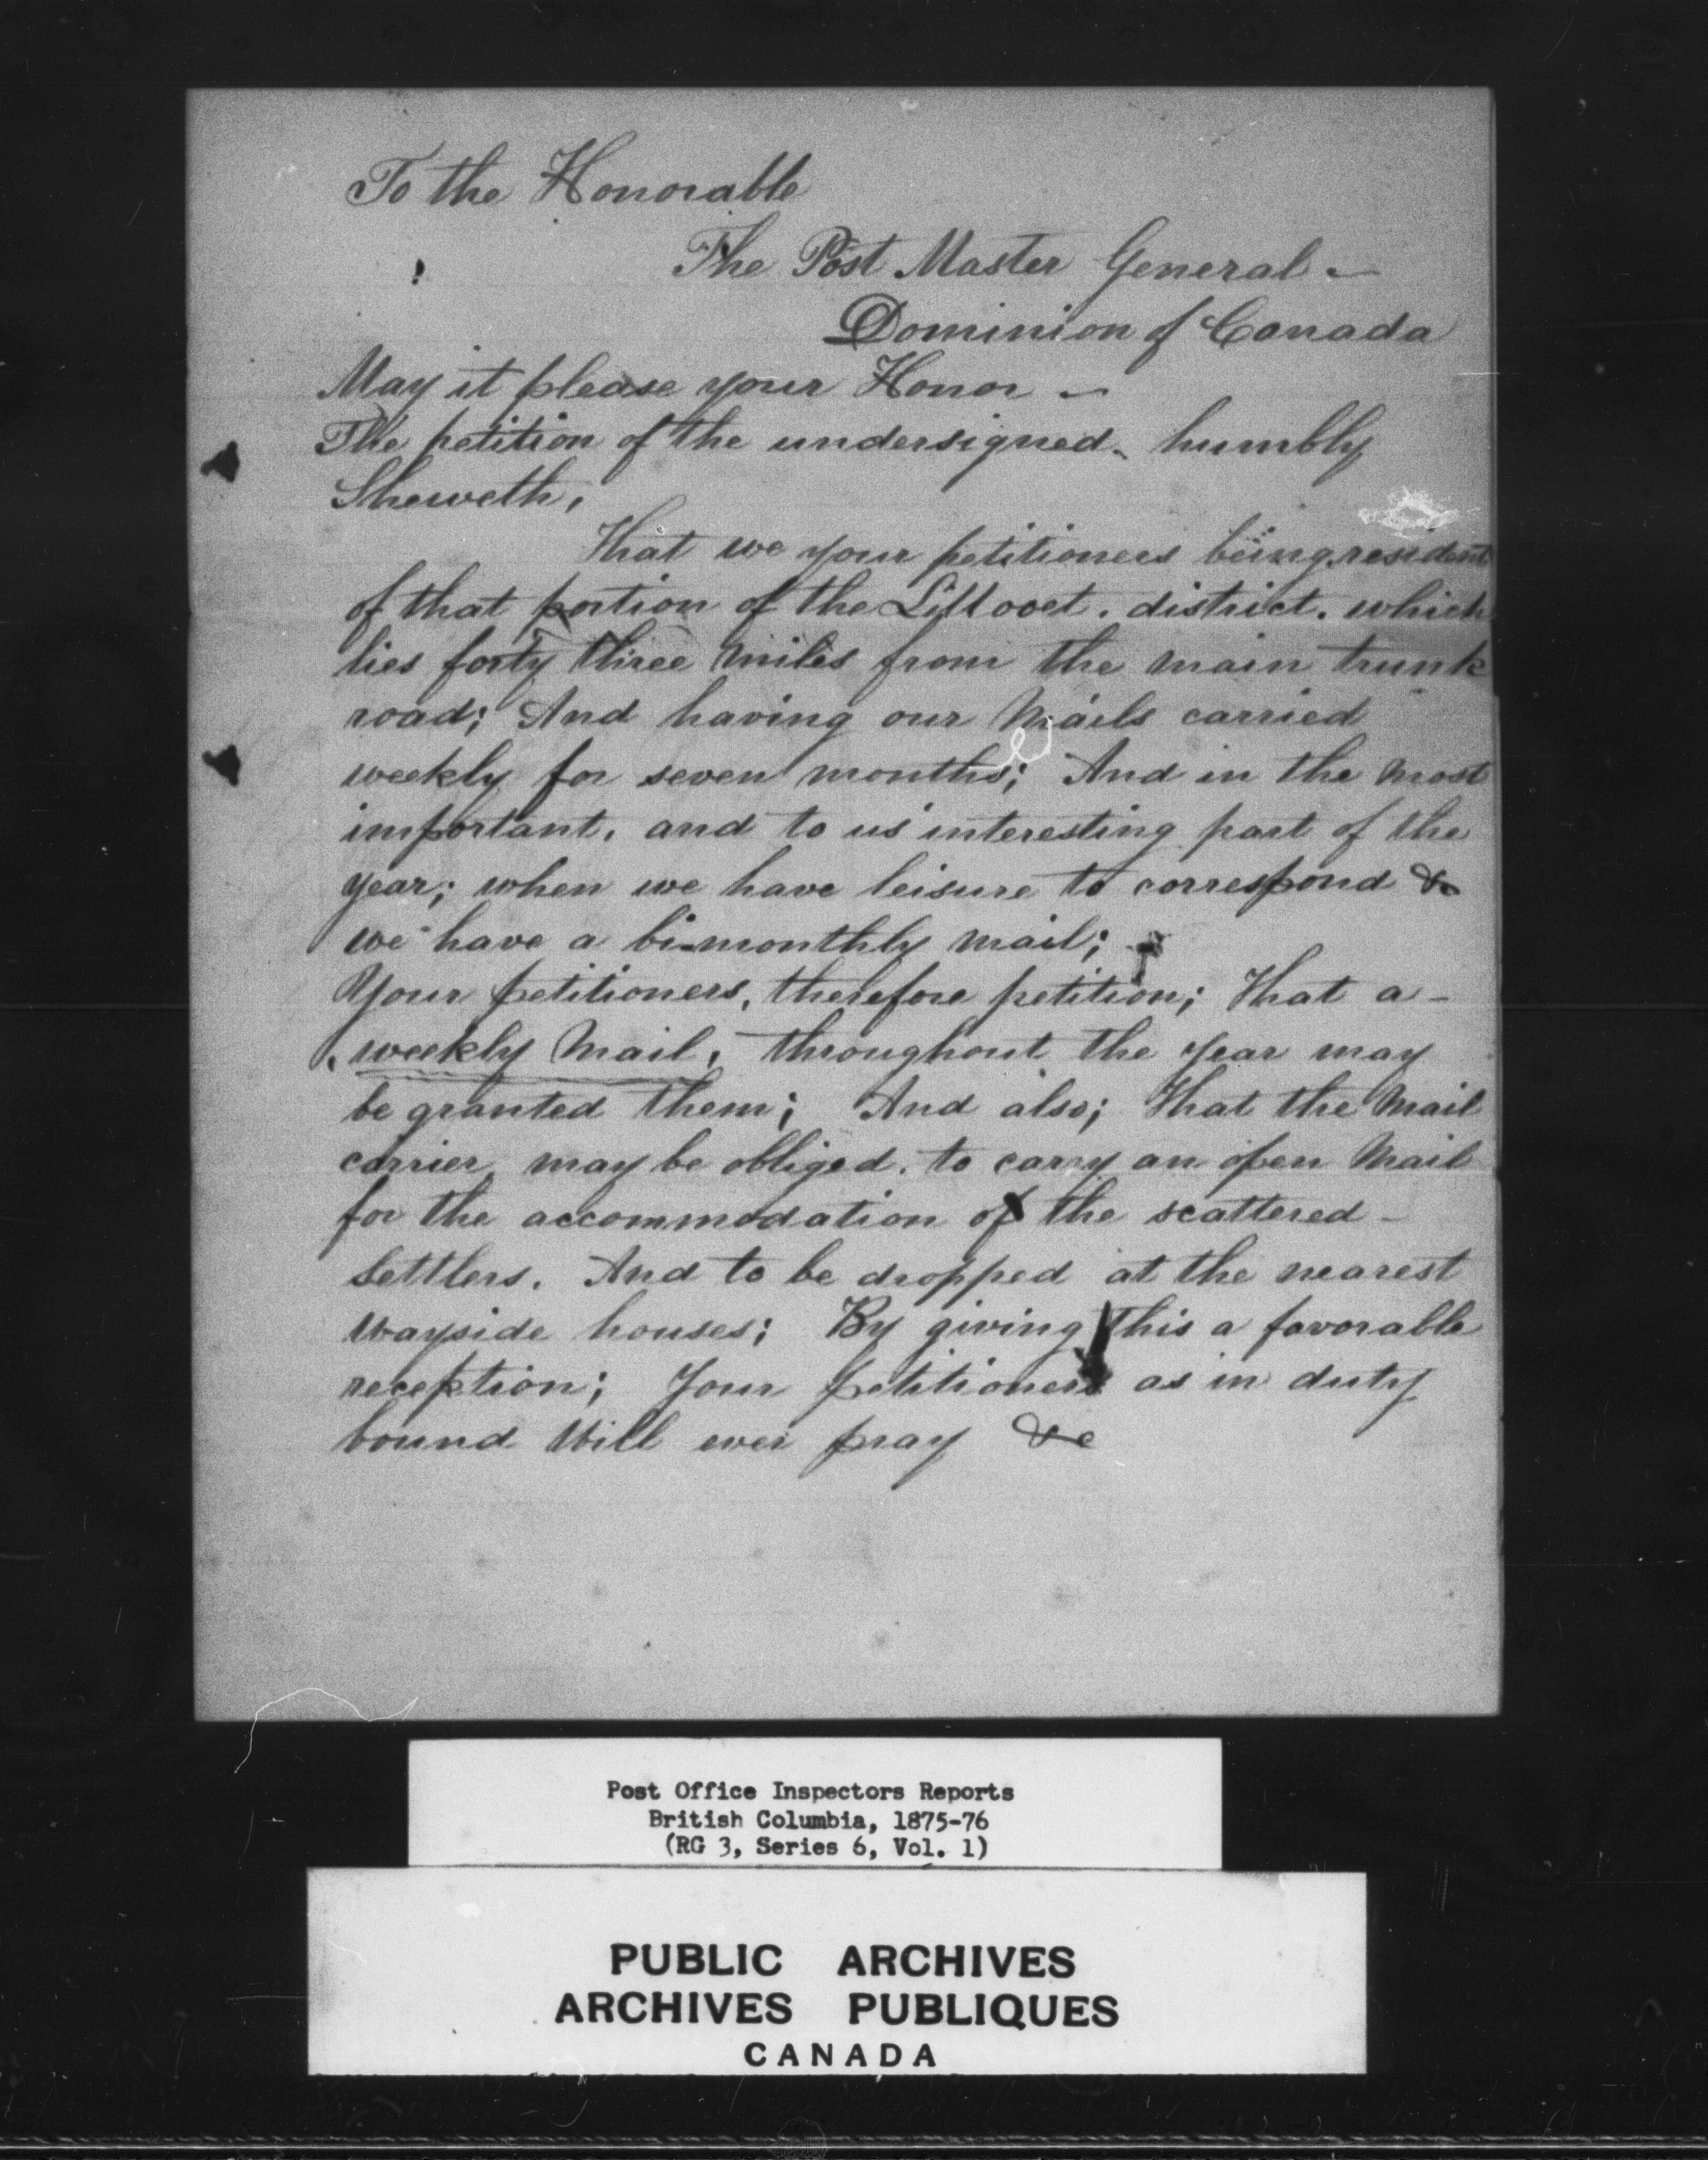 To the Honorable
The Post Master General -
Dominion of Canada
May it please your Honor -
The petition of the undersigned - humbly
Sheweth,
That we your petitioners being resident
of that portion of the Lillooet . district . which
lies forty three miles from the main trunk
road; And having our Mails carried
weekly for seven months; And in the most
important, and to us interesting part of the
year; when we have leisure to correspond &
we have a bi-monthly mail;
Your petitioners, therefore petition; That a -
weekly Mail, throughout the year may
be granted them; And also; That the Mail
carrier, may be obliged. to carry an open Mail
for the accommodation of the scattered -
Settlers. And to be dropped at the nearest
wayside houses; By giving this a favorable
reception; Your petitioners as in duty
bound Will ever pray &c
Post Office Inspectors Reports
British Columbia, 1875-76
(RG 3, Series 6, Vol. 1)
PUBLIC ARCHIVES
ARCHIVES PUBLIQUES
CANADA